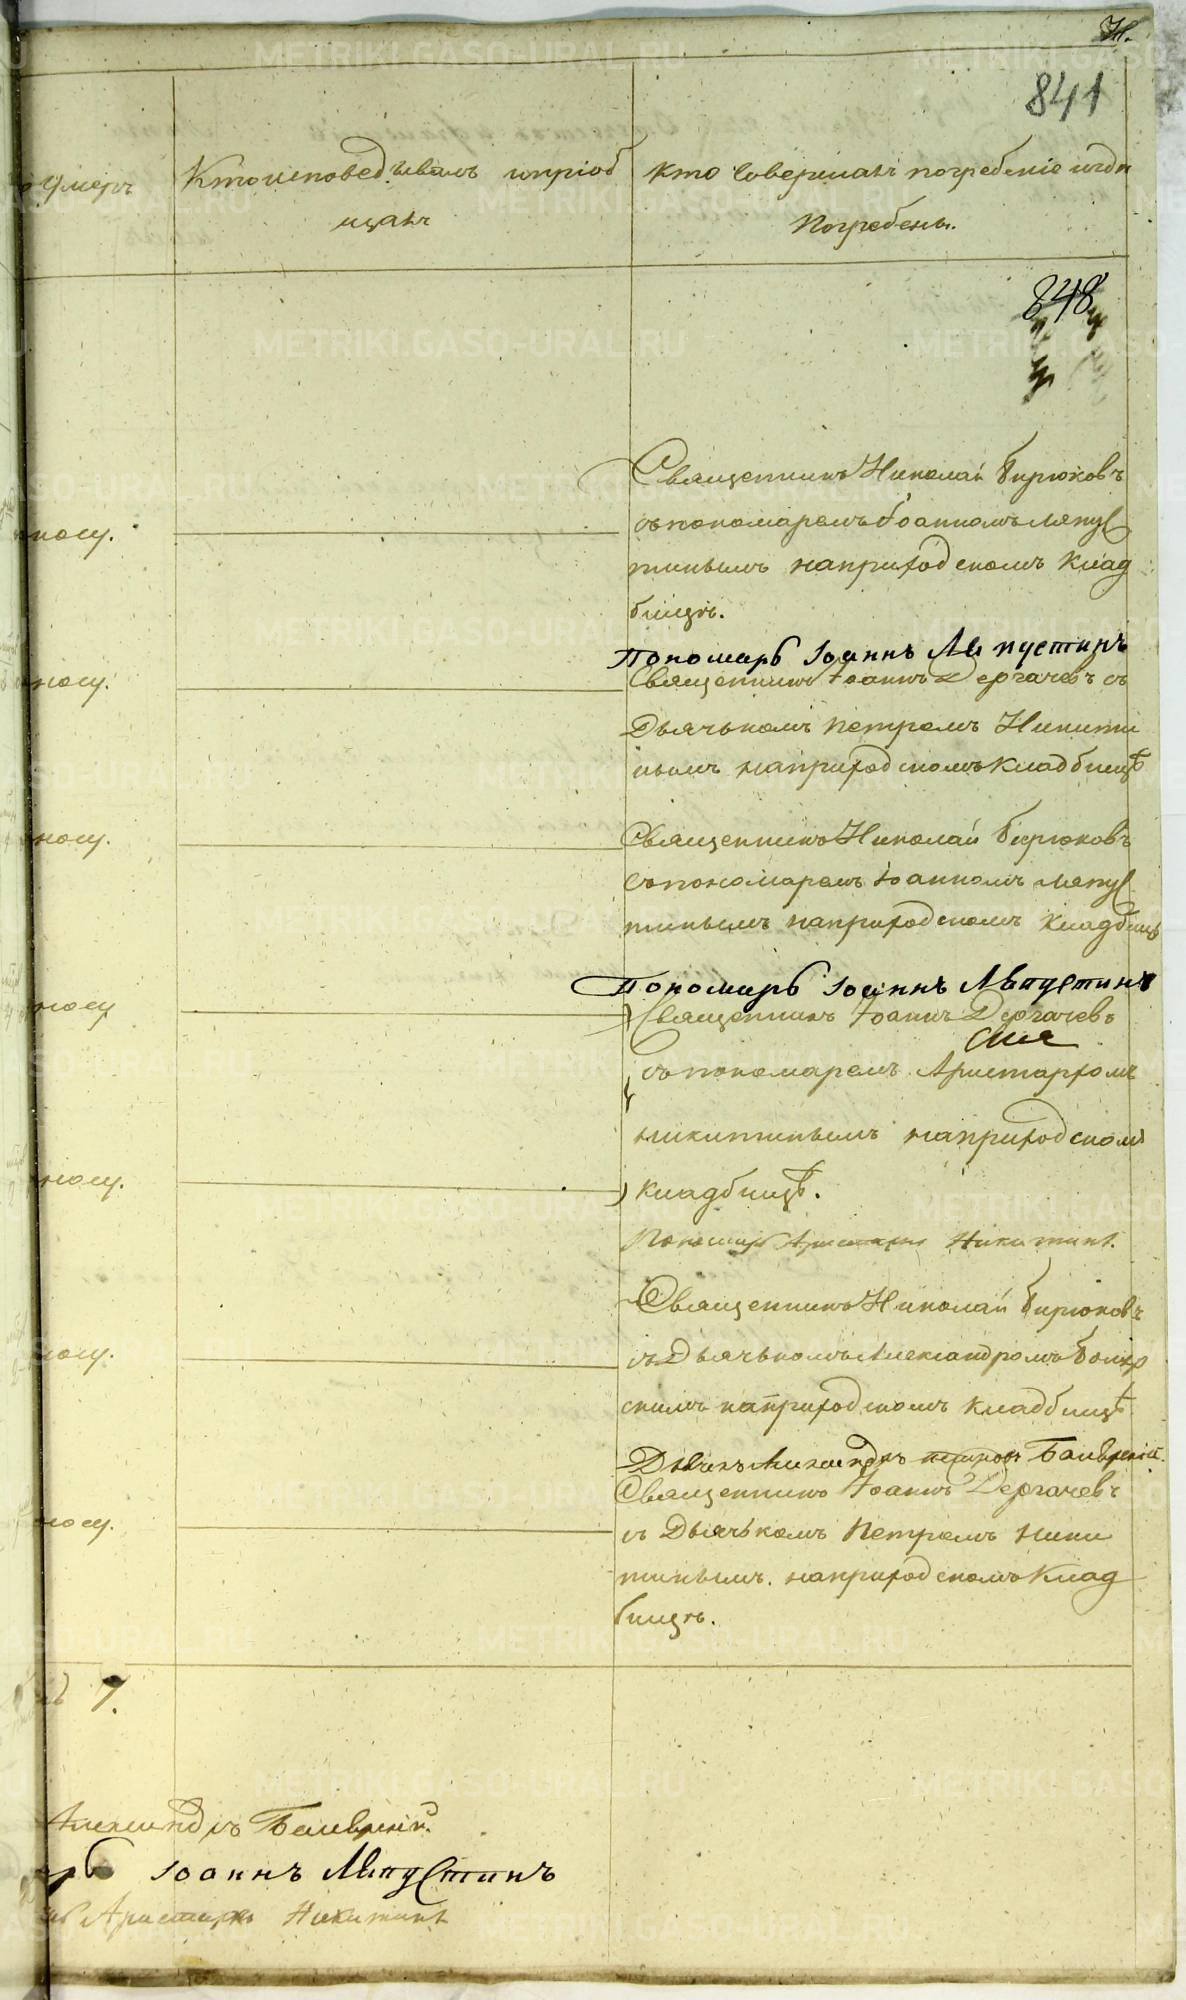 841
Умеръ
Кто исповедъивалъ и приоб
щалъ
кто Совершалъ погребеніе и гдѣ
Погребены.
848
Священникъ Николай Бирюковъ
съ пономаремъ Іоанномъ Ляпус
тинымъ на приходскомъ клад
бищѣ.
носу.
Пономарь Іоаннъ Ляпустинъ
Священникъ Іоаннъ Дергачевъ съ
носу.
Дьячькомъ Петромъ Никити
нымъ на приходскомъ кладбищѣ
носу.
Священникъ Николай Бирюковъ
съ пономаремъ Іоанномъ Ляпус
тинымъ на приходскомъ кладбищѣ
Пономарь Іоаннъ Ляпустинъ
носу
Священникъ Іоаннъ Дергачевъ
съ пономаремъ Аристархомъ
Никитинымъ на приходскомъ
носу.
кладбищѣ.
Пономарь Аристархъ Никитинъ.
Священникъ Николай Бирюковъ
носу.
съ Дьячькомъ Александромъ Боляр
скимъ на приходскомъ кладбищѣ
Дьячекъ Александръ
Священникъ Іоаннъ Дергачевъ
носу.
съ Дьячькомъ Петромъ Ники
тинымъ. на приходскомъ клад
бищѣ.
7.
Александръ
арь Іоаннъ Ляпустинъ
Аристархъ Никитинъ